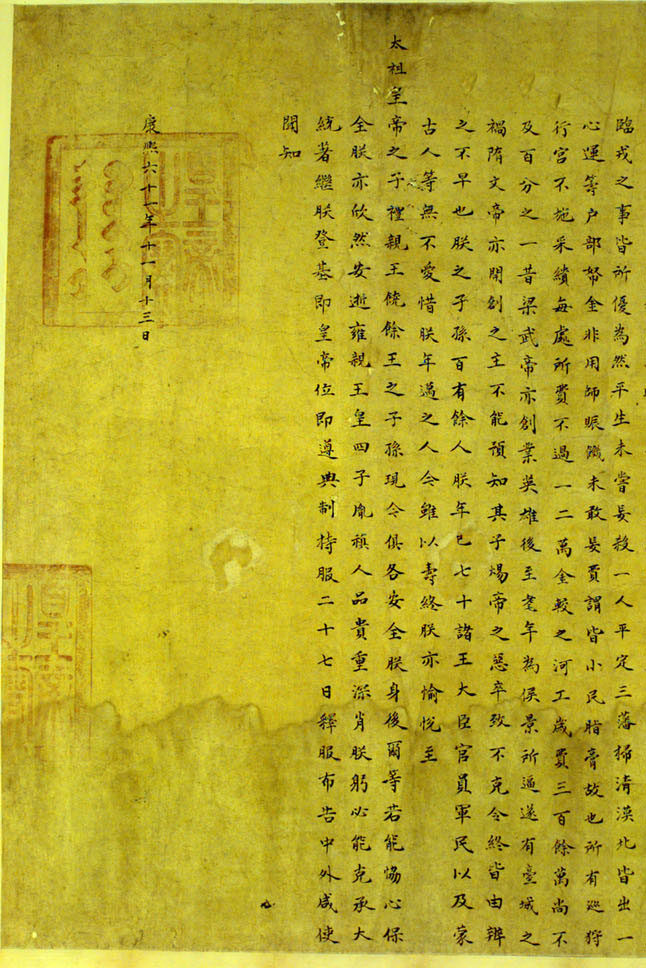 臨戎之事皆所優為然平生未嘗妄殺一人平定三藩掃清漠北皆出一
心運等户部帑金非用師賑饑未敢妄費謂皆小民脂膏故也所有巡狩
行宫不施采繢每處所費不過一二萬金較之河工歲費三百餘萬尚不
及百分之一昔梁武帝亦創業英雄後至耄年為侯景所逼遂有臺城之
禍隋文帝亦開創之主不能預知其子煬帝之惡卒致不克令終皆由辨
之不早也朕之子孫百有餘人朕年已七十諸王大臣官員軍民以及蒙
古人等無不愛惜朕年邁之人今雖以壽終朕亦愉悅至
太祖皇帝之子禮親王饒餘王之子孫現今俱各安全朕身後爾等若能恊心保
全朕亦欣然安逝雍親王皇四子胤禛人品貴重深肖朕躬必能克承大
統著繼朕登基即皇帝位即遵典制持服二十七日釋服布告中外咸使
聞知
康熙六十一年十一月十三日